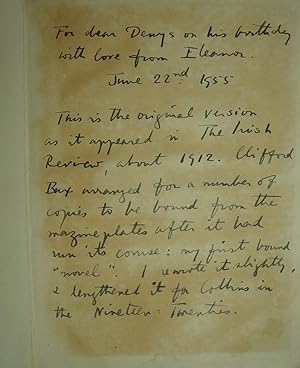 For dear Denys on his birthday
with love from Eleanor.
June 22nd 1955
This is the original version
as it appeared in The Irish
Review, about 1912. Clifford
Bax arranged for a number of
copies to be bound from the
mazine plates after it had
run its course: my first bound
"novel". I rewrote it slightly,
& lengthened it for Collins in
the Nineteen-Twenties.